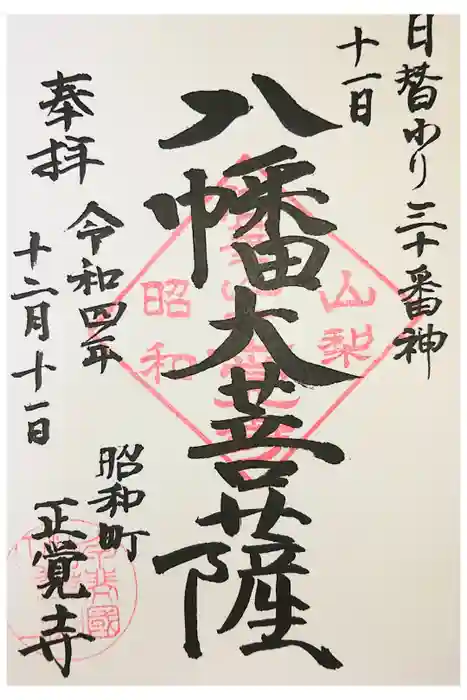 日替わり三十番神
十一日
八幡大菩薩
山梨
昭和
奉拝
令和四年
十二月十一日
昭和町
正覚寺